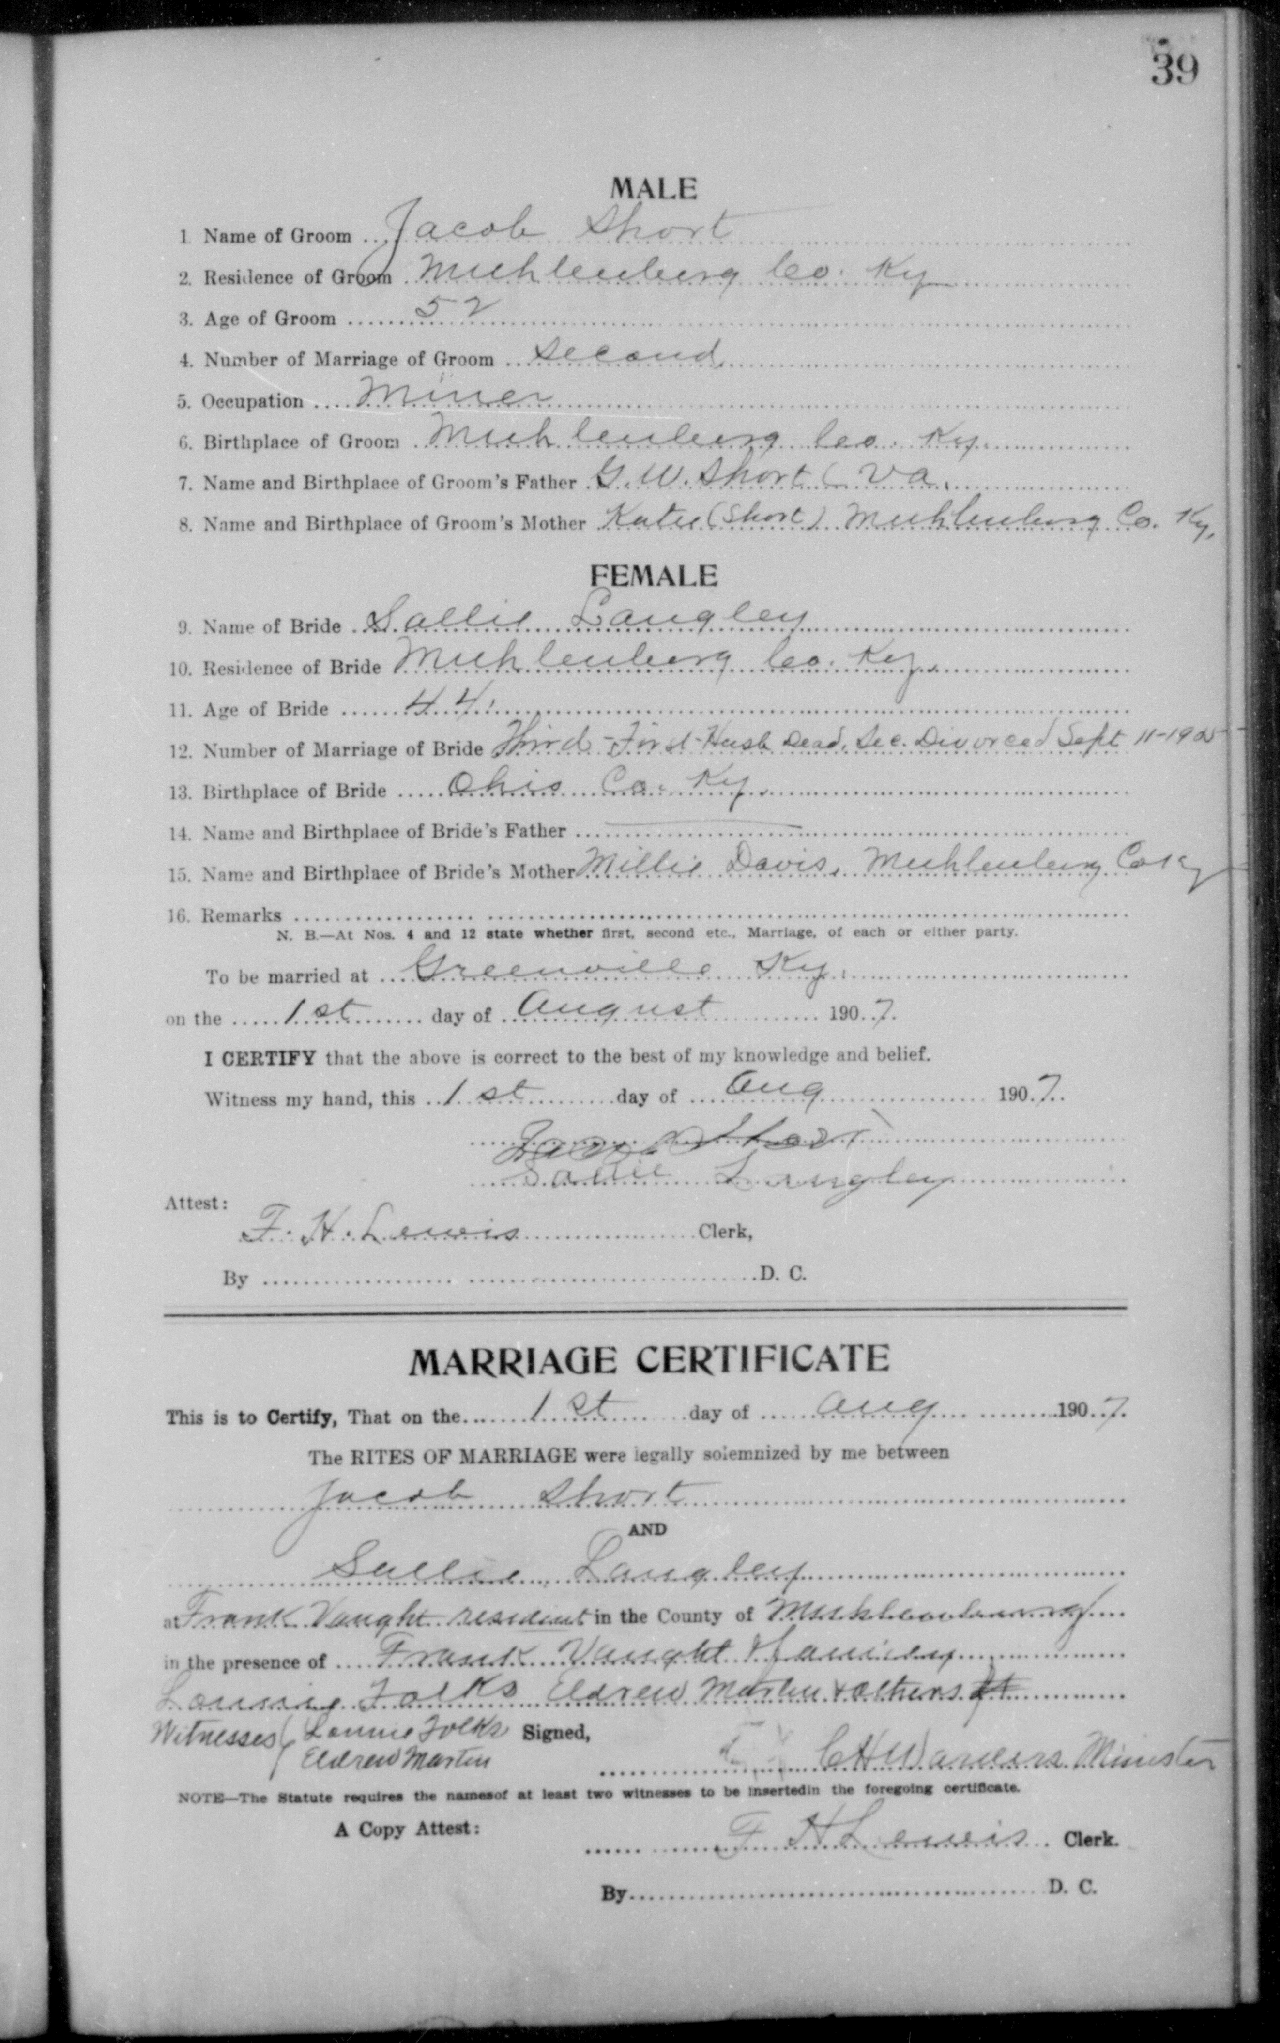 39
MALE
1 Name of Groom Jacob Short
2. Residence of Groom Muhlenberg Co. Ky
3. Age of Groom 52
4. Number of Marriage of Groom second
5. Occupation Miner
6. Birthplace of Groom Muhlenberg Co. Ky.
7. Name and Birthplace of Groom's Father G. W. Short ( Va.
8. Name and Birthplace of Groom's Mother Katie (Short) Muhlenberg Co. Ky.
FEMALE
9. Name of Bride Sallie Langley
10. Residence of Bride Muhlenberg Co. Ky.
11. Age of Bride 44.
12. Number of Marriage of Bride Third - First Husb Dead, Sec. Divorced Sept 11-1905
13. Birthplace of Bride Ohio Co. Ky.
14. Name and Birthplace of Bride's Father
15. Name and Birthplace of Bride's Mother Millie Davis, Muhlenberg Co Ky
16. Remarks
N. B.—At Nos. 4 and 12 state whether first, second etc., Marriage, of each or either party.
To be married at Greenville Ky.
on the 1st day of August 1907.
I CERTIFY that the above is correct to the best of my knowledge and belief.
Witness my hand, this 1st day of Aug 1907.
Jacob Short
Sallie Langley
Attest:
F. H. Lewis Clerk,
By D. C.
MARRIAGE CERTIFICATE
This is to Certify, That on the 1st day of Aug 1907.
The RITES OF MARRIAGE were legally solemnized by me between
Jacob Short
AND
Sallie Langley
at Frank Vaught resident in the County of Muhlenberg
in the presence of Frank Vaught & family
Lonnie Folks Eldred Martin & others
Witnesses ( Lonnie Folks Signed,
Eldred Martin
C H Minister
NOTE—The Statute requires the namesof at least two witnesses to be insertedin the foregoing certificate.
A Copy Attest:
F H Lewis Clerk.
By D. C.